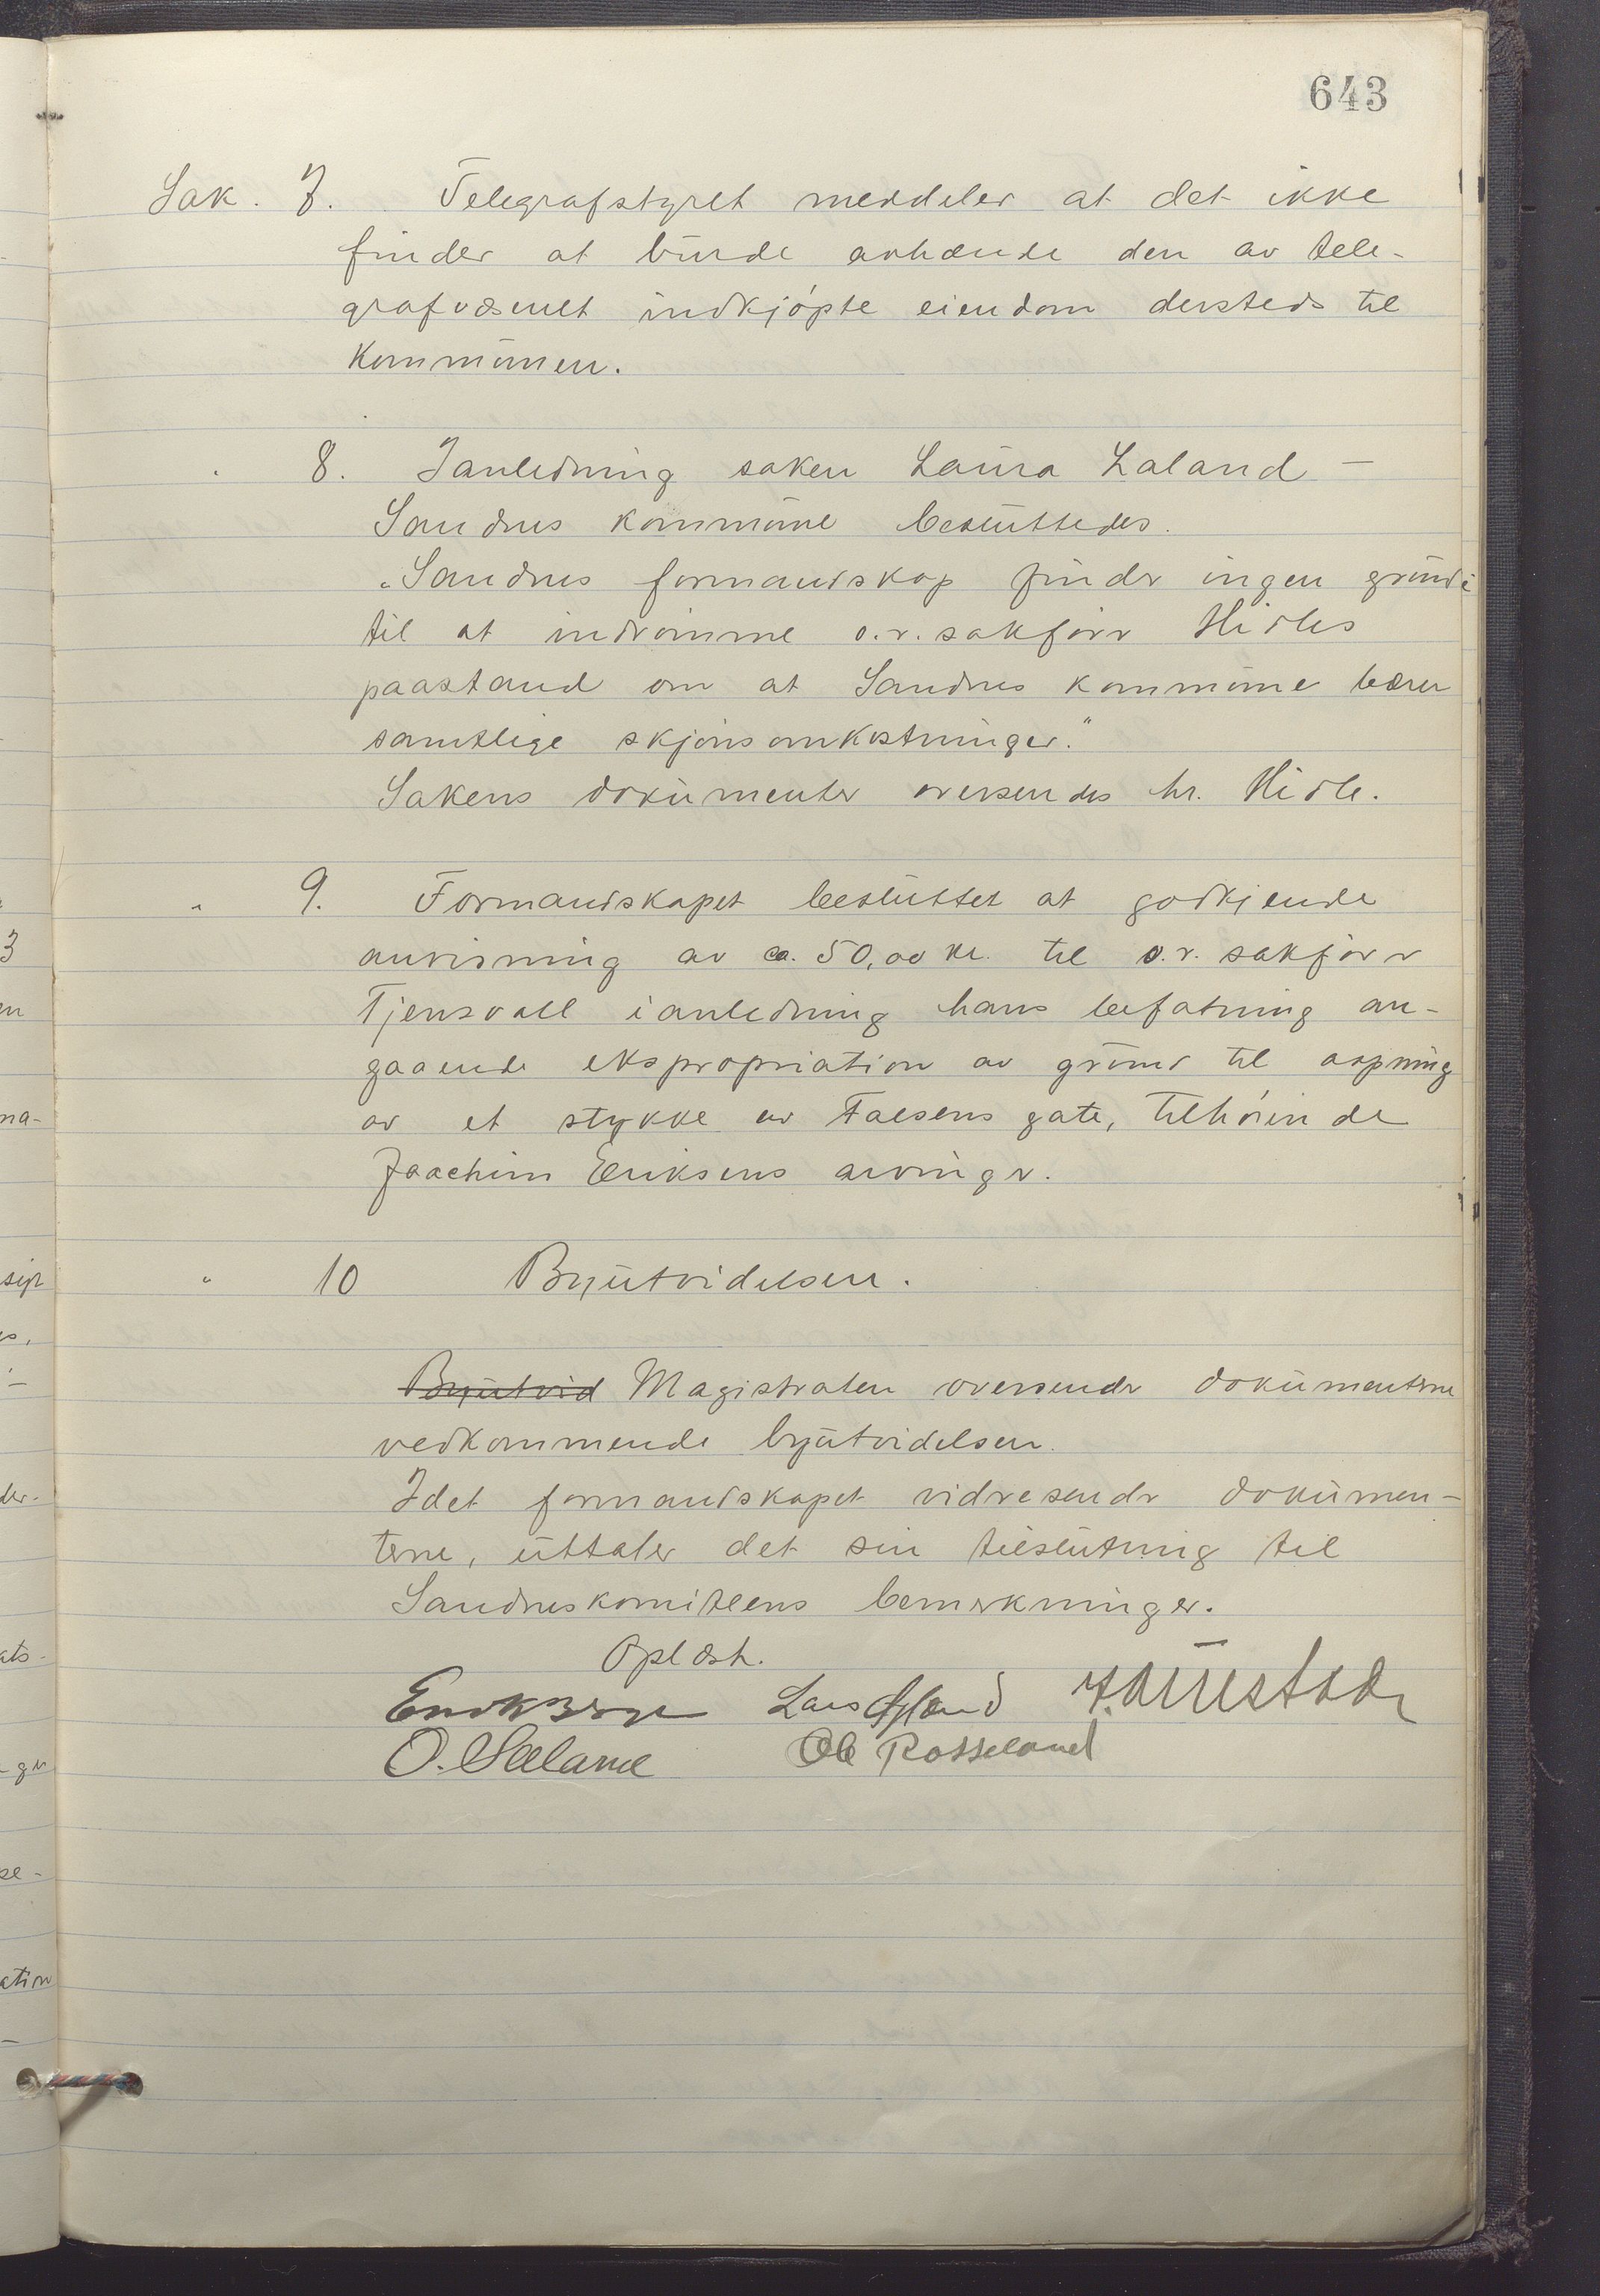 643
Sak. 7. Telegrafstyret meddeler at det ikke
finder at burde avhænde den av tele-
grafvæsenet indkjøpte eiendom dersteds til
kommunen.
" 8. Ianledning saken Laura Laland -
Sandnes kommune besluttedes.
"Sandnes formandskap finder ingen grund
til at indrømme o.r. sakfører Hidles
paastand om at Sandnes kommune bærer
samtlige skjønsomkostninger."
Sakens dokumenter oversendes hr. Hidle.
" 9. Formandskapet besluttet at godkjende
anvisning av ca. 50,00 kr. til o.r. sakfører
Tjensvoll ianledning hans befatning an-
gaaende ekspropriation av grund til aapning
av et stykke av Falsens gate, tilhørende
Joachim Eriksens arvinger.
" 10 Byutvidelsen.
Byutvid Magistraten oversender dokumenterne
vedkommende byutvidelsen.
Idet formandskapet videresender dokumen-
terne, uttaler det sin tilslutning til
Sandneskomiteens bemerkninger.
Oplæst.
Lars
O. Ole Rosseland